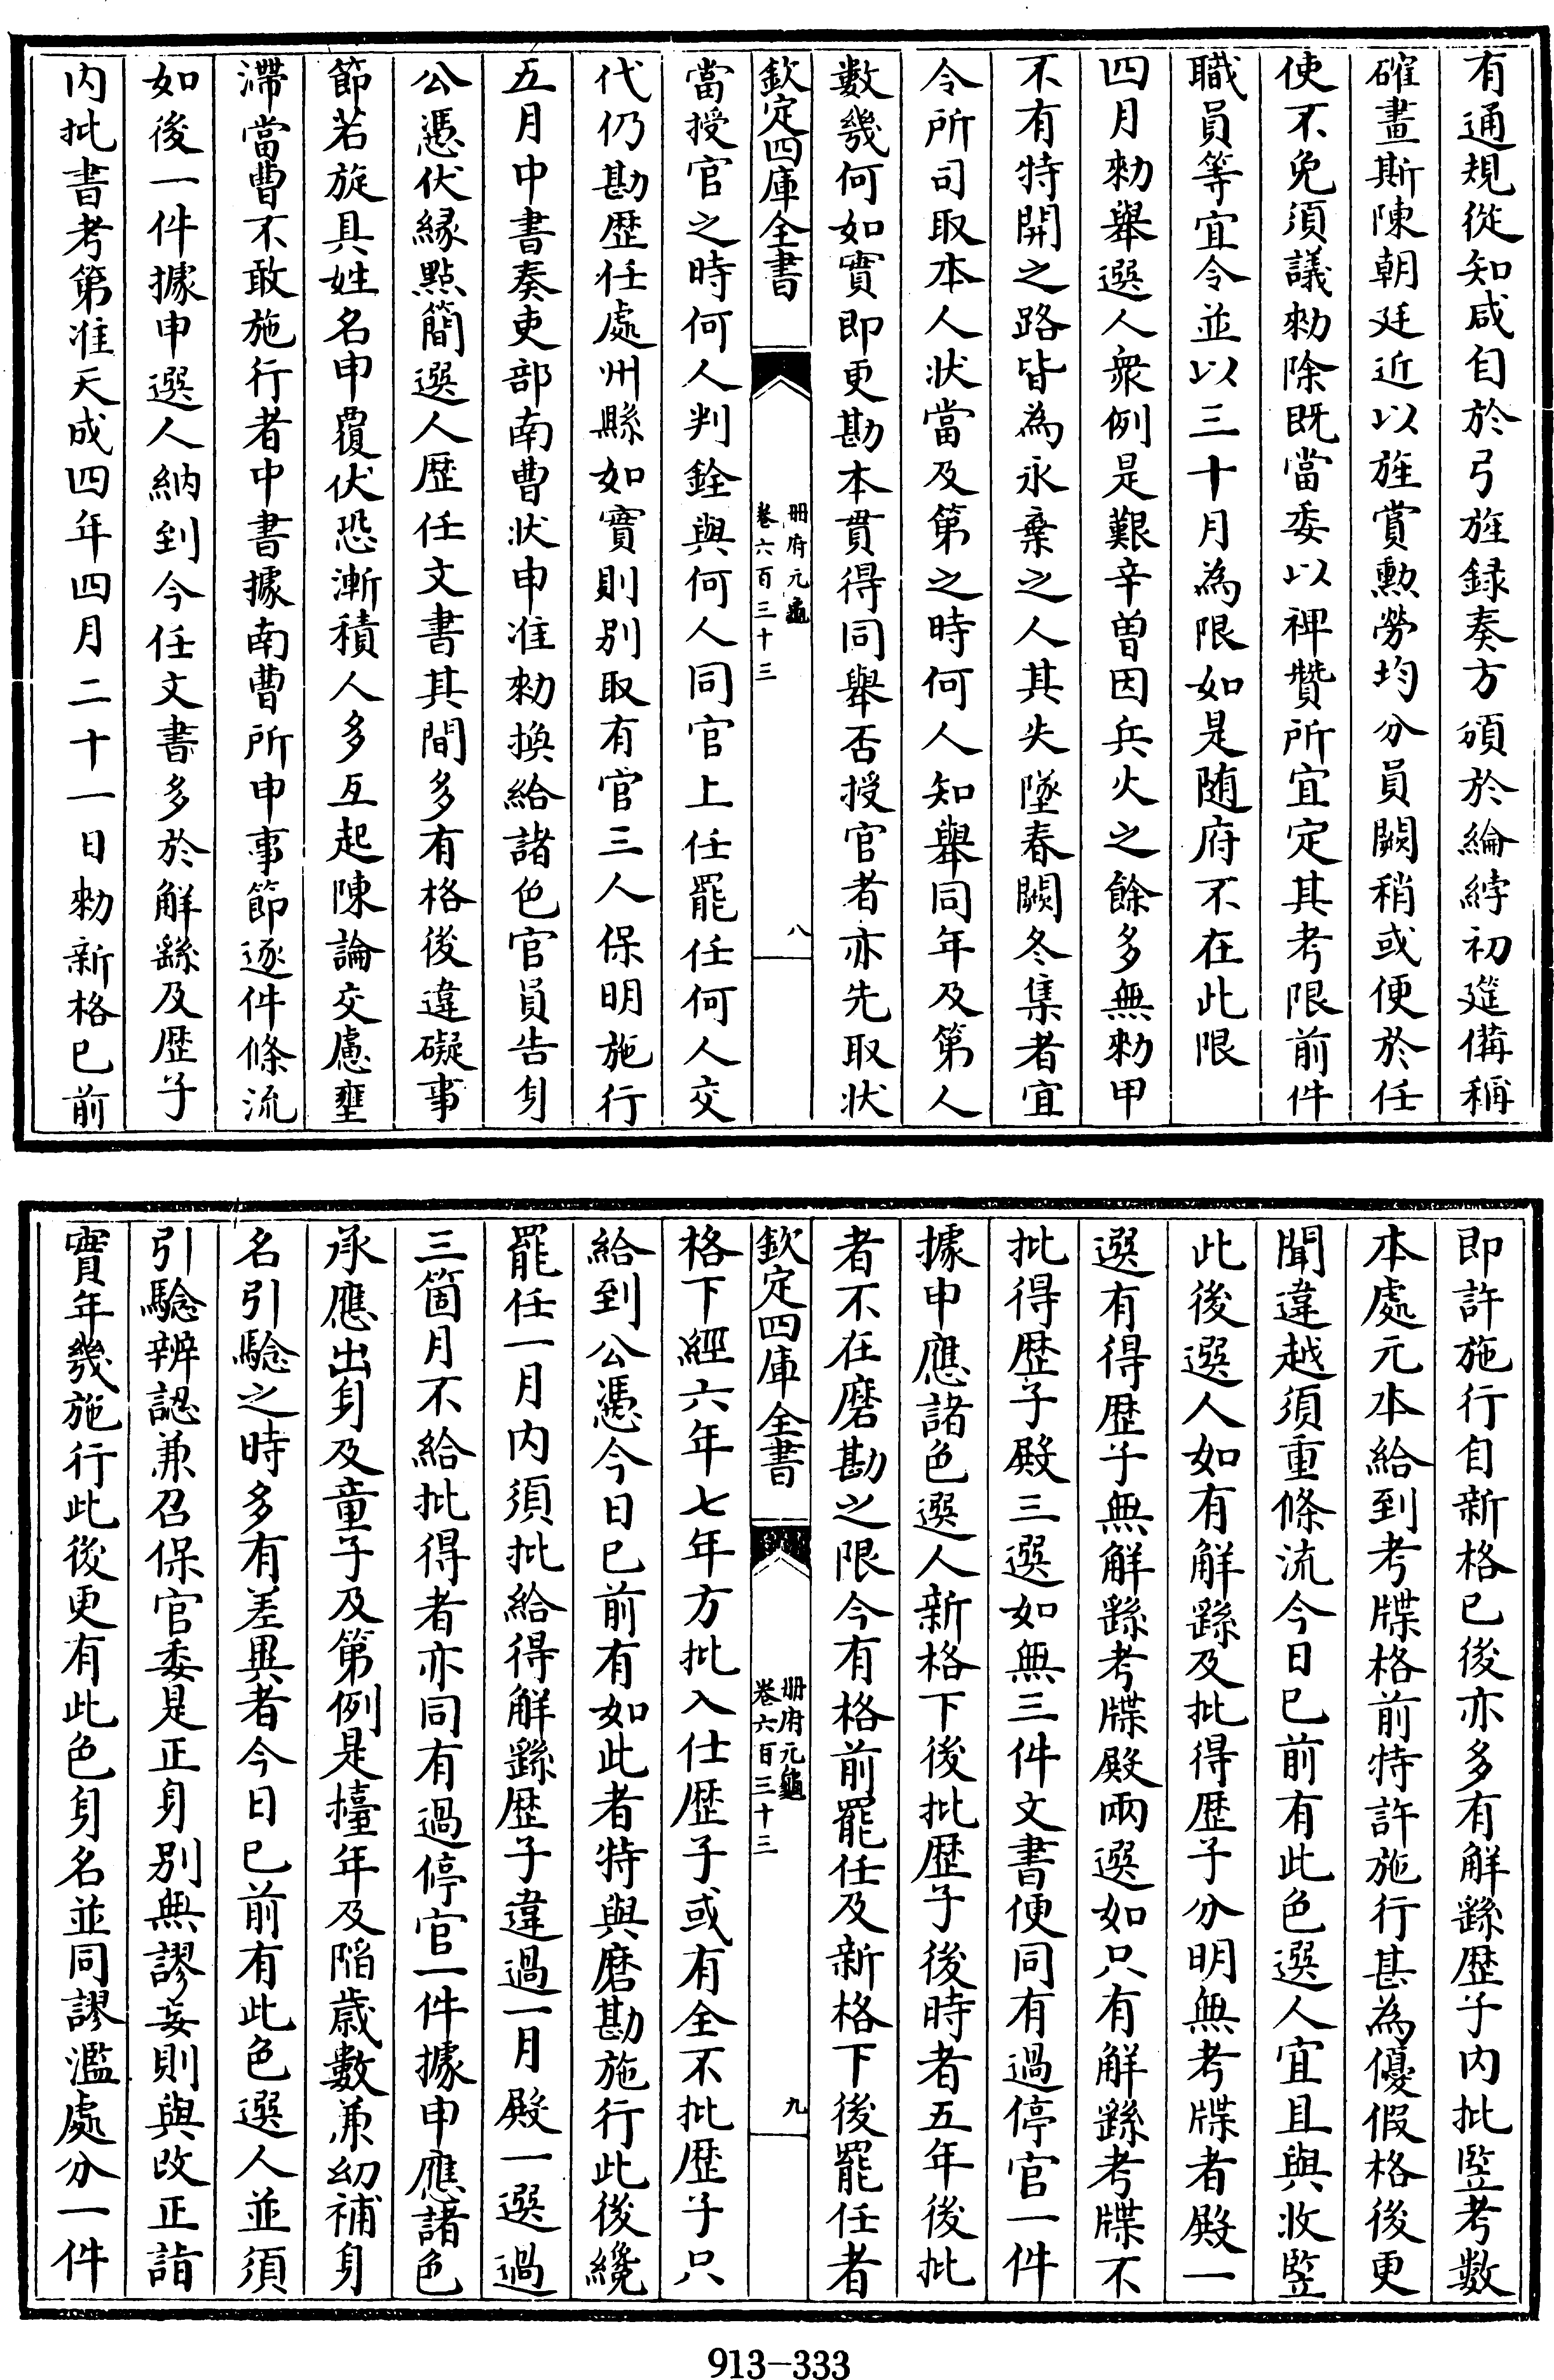 有通規從知咸自於弓旌録奏方頒於綸綍初筵備稱
確畫斯陳朝廷近以旌賞勲勞均分員闕稍或便於任
使不免須議勅除既當委以裨贊所宜定其考限前件
職員等宜令並以三十月為限如是随府不在此限
四月勅舉選人衆例是艱辛曽因兵火之餘多無勅甲
不有特開之路皆為永棄之人其失墜春闕冬集者宜
令所司取本人状當及第之時何人知舉同年及第人
數幾何如實即更勘本貫得同舉否授官者亦先取状
欽定四庫全書
冊府元龜
卷六百三十三
八
當授官之時何人判銓與何人同官上任罷任何人交
代仍勘歴任處州縣如實則别取有官三人保明施行
五月中書奏吏部南曹状申准勅換給諸色官員告身
公憑伏縁點簡選人歴任文書其間多有格後違礙事
節若旋具姓名申覆伏恐漸積人多互起陳論交慮壅
滯當曹不敢施行者中書據南曹所申事節逐件條流
如後一件據申選人納到今任文書多於解繇及歴子
内批書考第准天成四年四月二十一日勅新格已前
即許施行自新格已後亦多有解繇歴子内批監考數
本處元本給到考牒格前特許施行甚為優假格後更
聞違越須重條流今日已前有此色選人宜且與收監
此後選人如有解繇及批得歴子分明無考牒者殿一
選有得歴子無解繇考牒殿兩選如只有解繇考牒不
批得歴子殿三選如無三件文書便同有過停官一件
據申應諸色選人新格下後批歴子後時者五年後批
者不在磨勘之限今有格前罷任及新格下後罷任者
欽定四庫全書
冊府元龜
卷六百三十三
九
格下經六年七年方批入仕歴子或有全不批歴子只
給到公憑今日已前有如此者特與磨勘施行此後纔
罷任一月内須批給得解繇歴子違過一月殿一選過
三箇月不給批得者亦同有過停官一件據申應諸色
承應出身及童子及第例是擡年及陷歲數兼幼補身
名引驗之時多有差異者今日已前有此色選人並須
引驗辨認兼召保官委是正身别無謬妄則與改正詣
實年幾施行此後更有此色身名並同謬濫處分一件
913-333